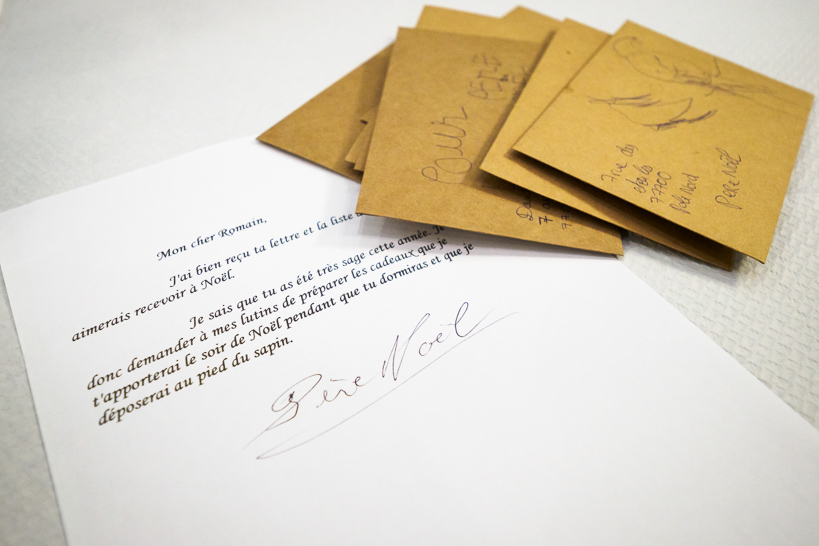 Mon cher Romain,
J'ai bien reçu ta lettre et la liste
aimerais recevoir à Noël.
Je sais que tu as été très sage cette année. Je
donc demander à mes lutins de préparer les cadeaux que je
t'apporterai le soir de Noël pendant que tu dormiras et que je
déposerai au pied du sapin.
Père Noël
Pour
7 rue des
77700
Pole Nord
Père Noël